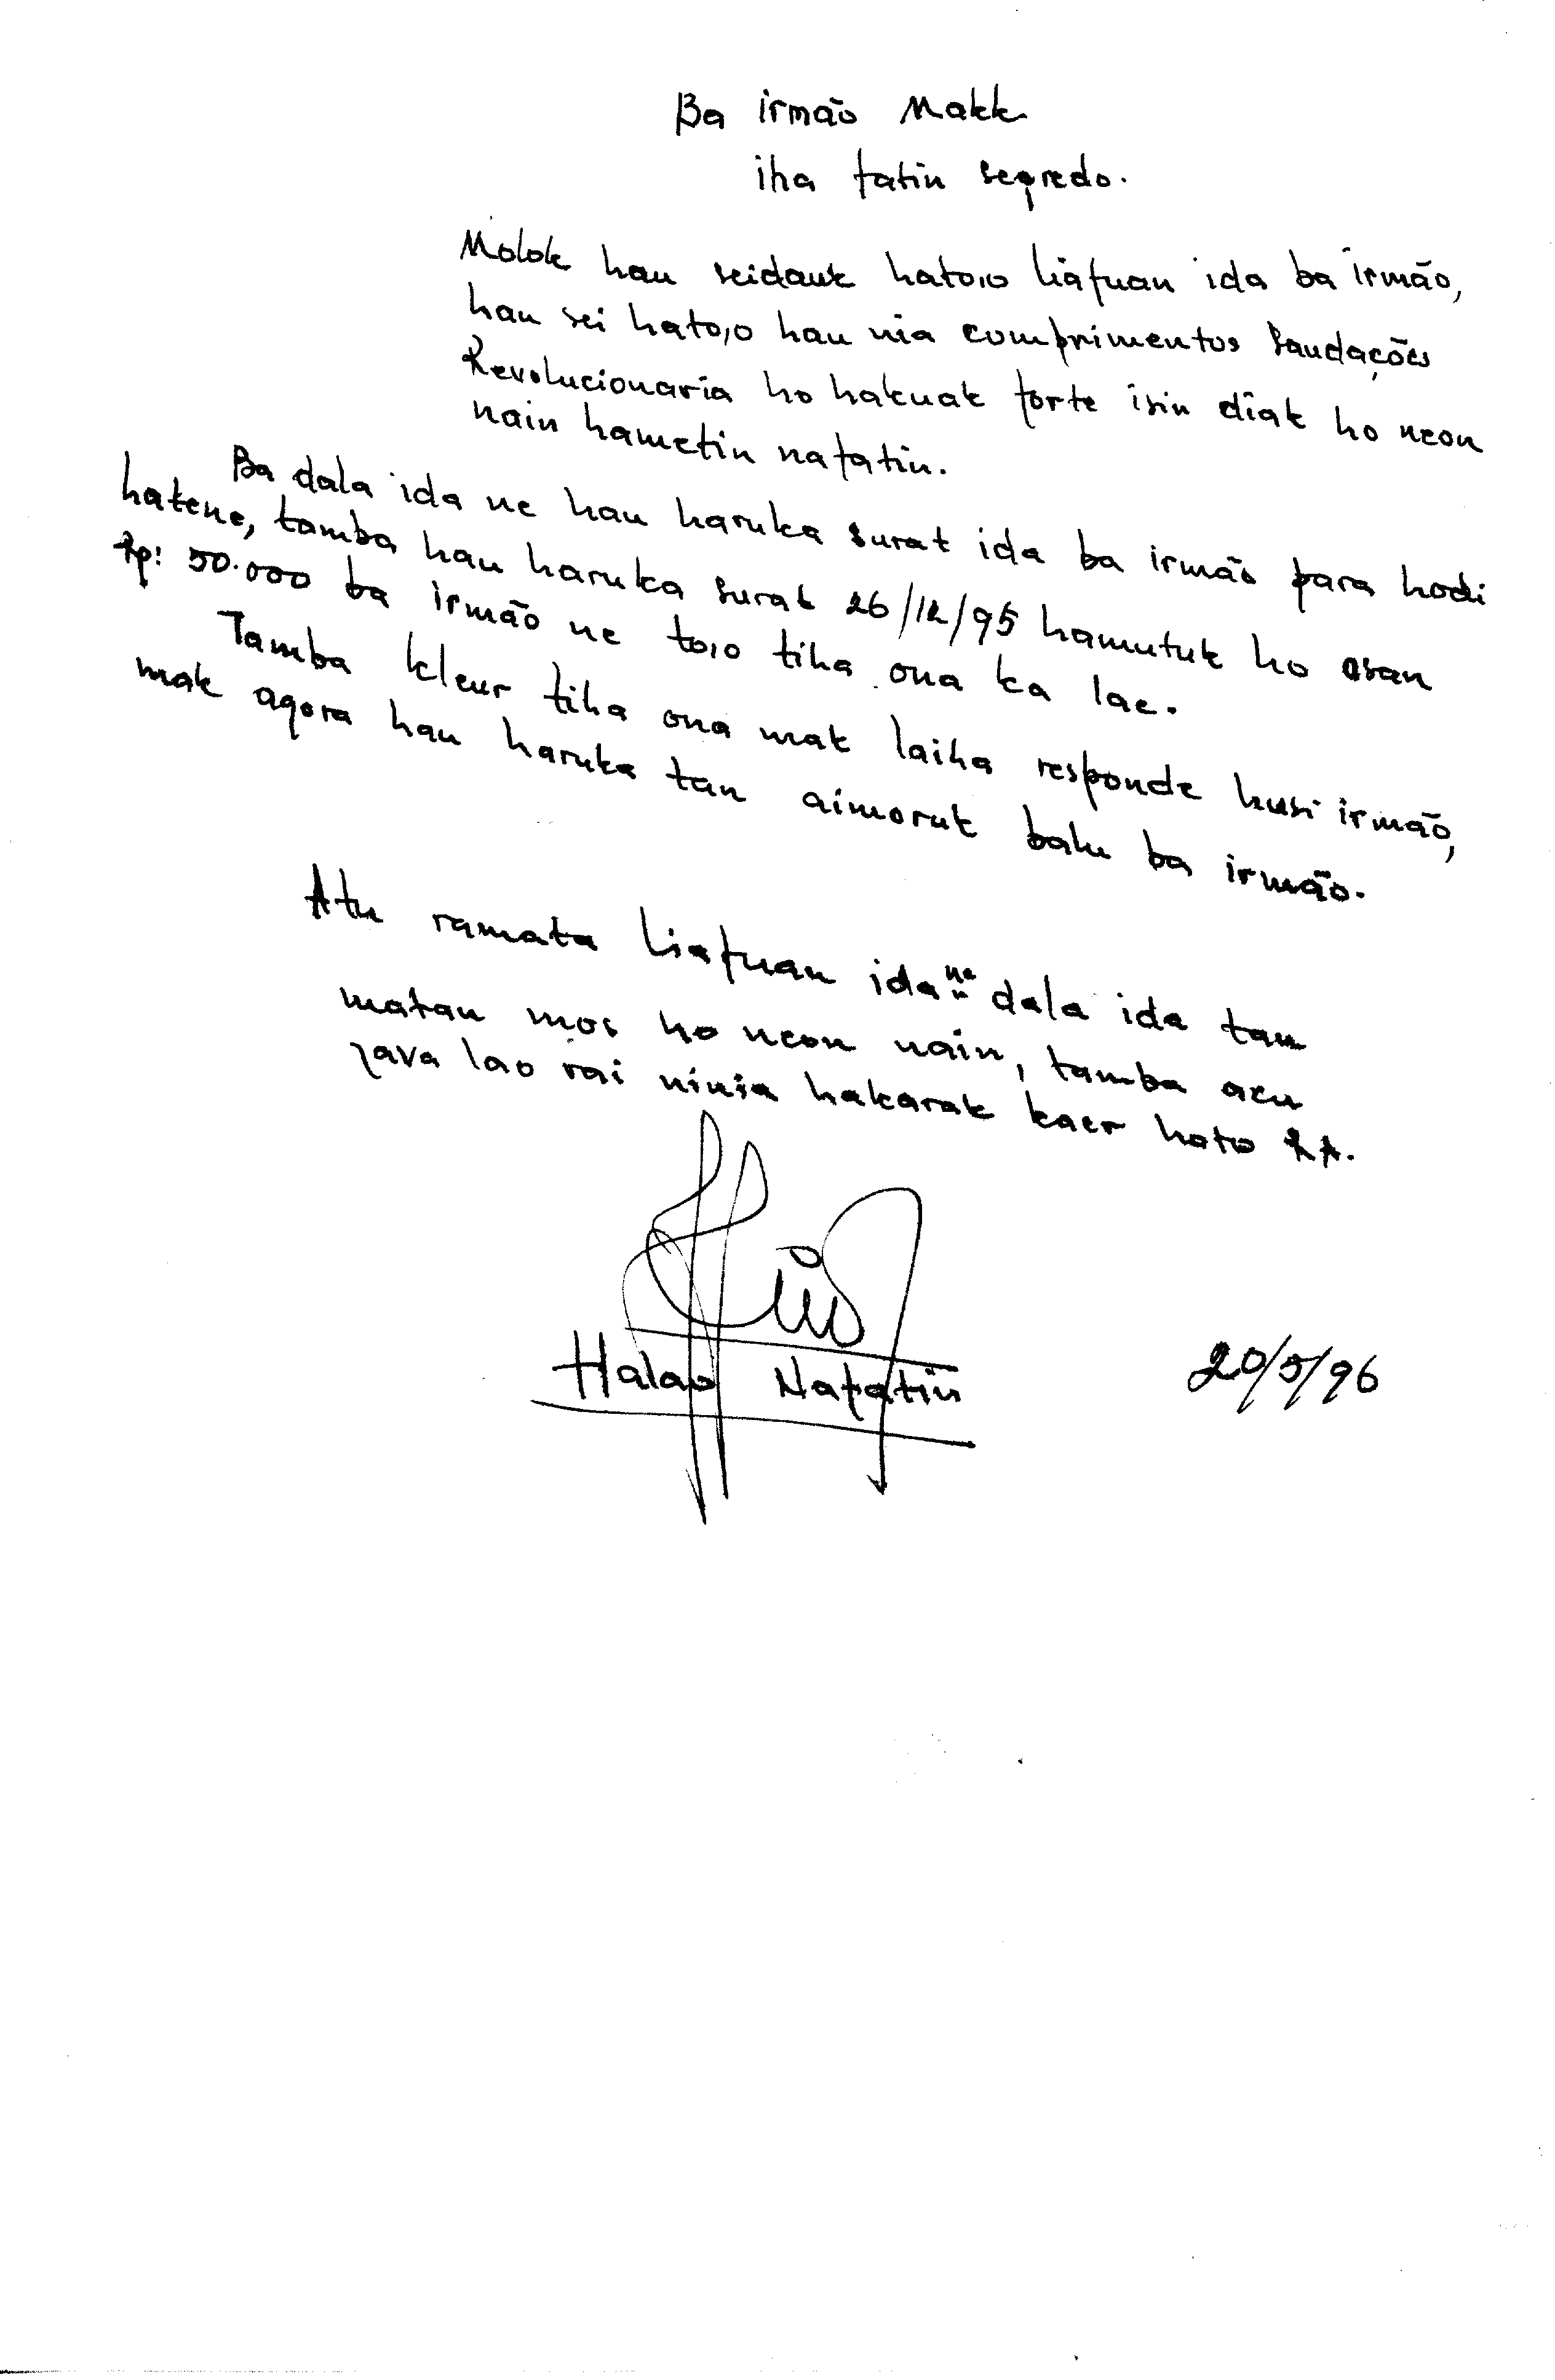 Ba irmão Makk
iha fatin segredo.
Molok hau seidauk hato,o liafuan ida ba irmão,
hau sei hato,o hau nia comprimentos Saudações
Revolucionaria ho hakuak forte isin diak ho neon
nain hametin nafatin.
Ba dala ida ne hau haruka surat ida ba irmão para hodi
hatene, tamba hau haruka surat 26/12/95 hamutuk ho osan
Rp: 50.000 ba irmão ne to,o tiha ona ka lae.
Tamba kleur tiha ona mak laiha responde husi irmão,
mak agora hau haruka tan aimoruk balu ba irmão.
Atu ramata liafuan ida ne dala ida tan
matan mos ho neon nain, tamba asu
java lao rai ninia hakarak kaer hato RA.
Halao Nafatin
20/5/96